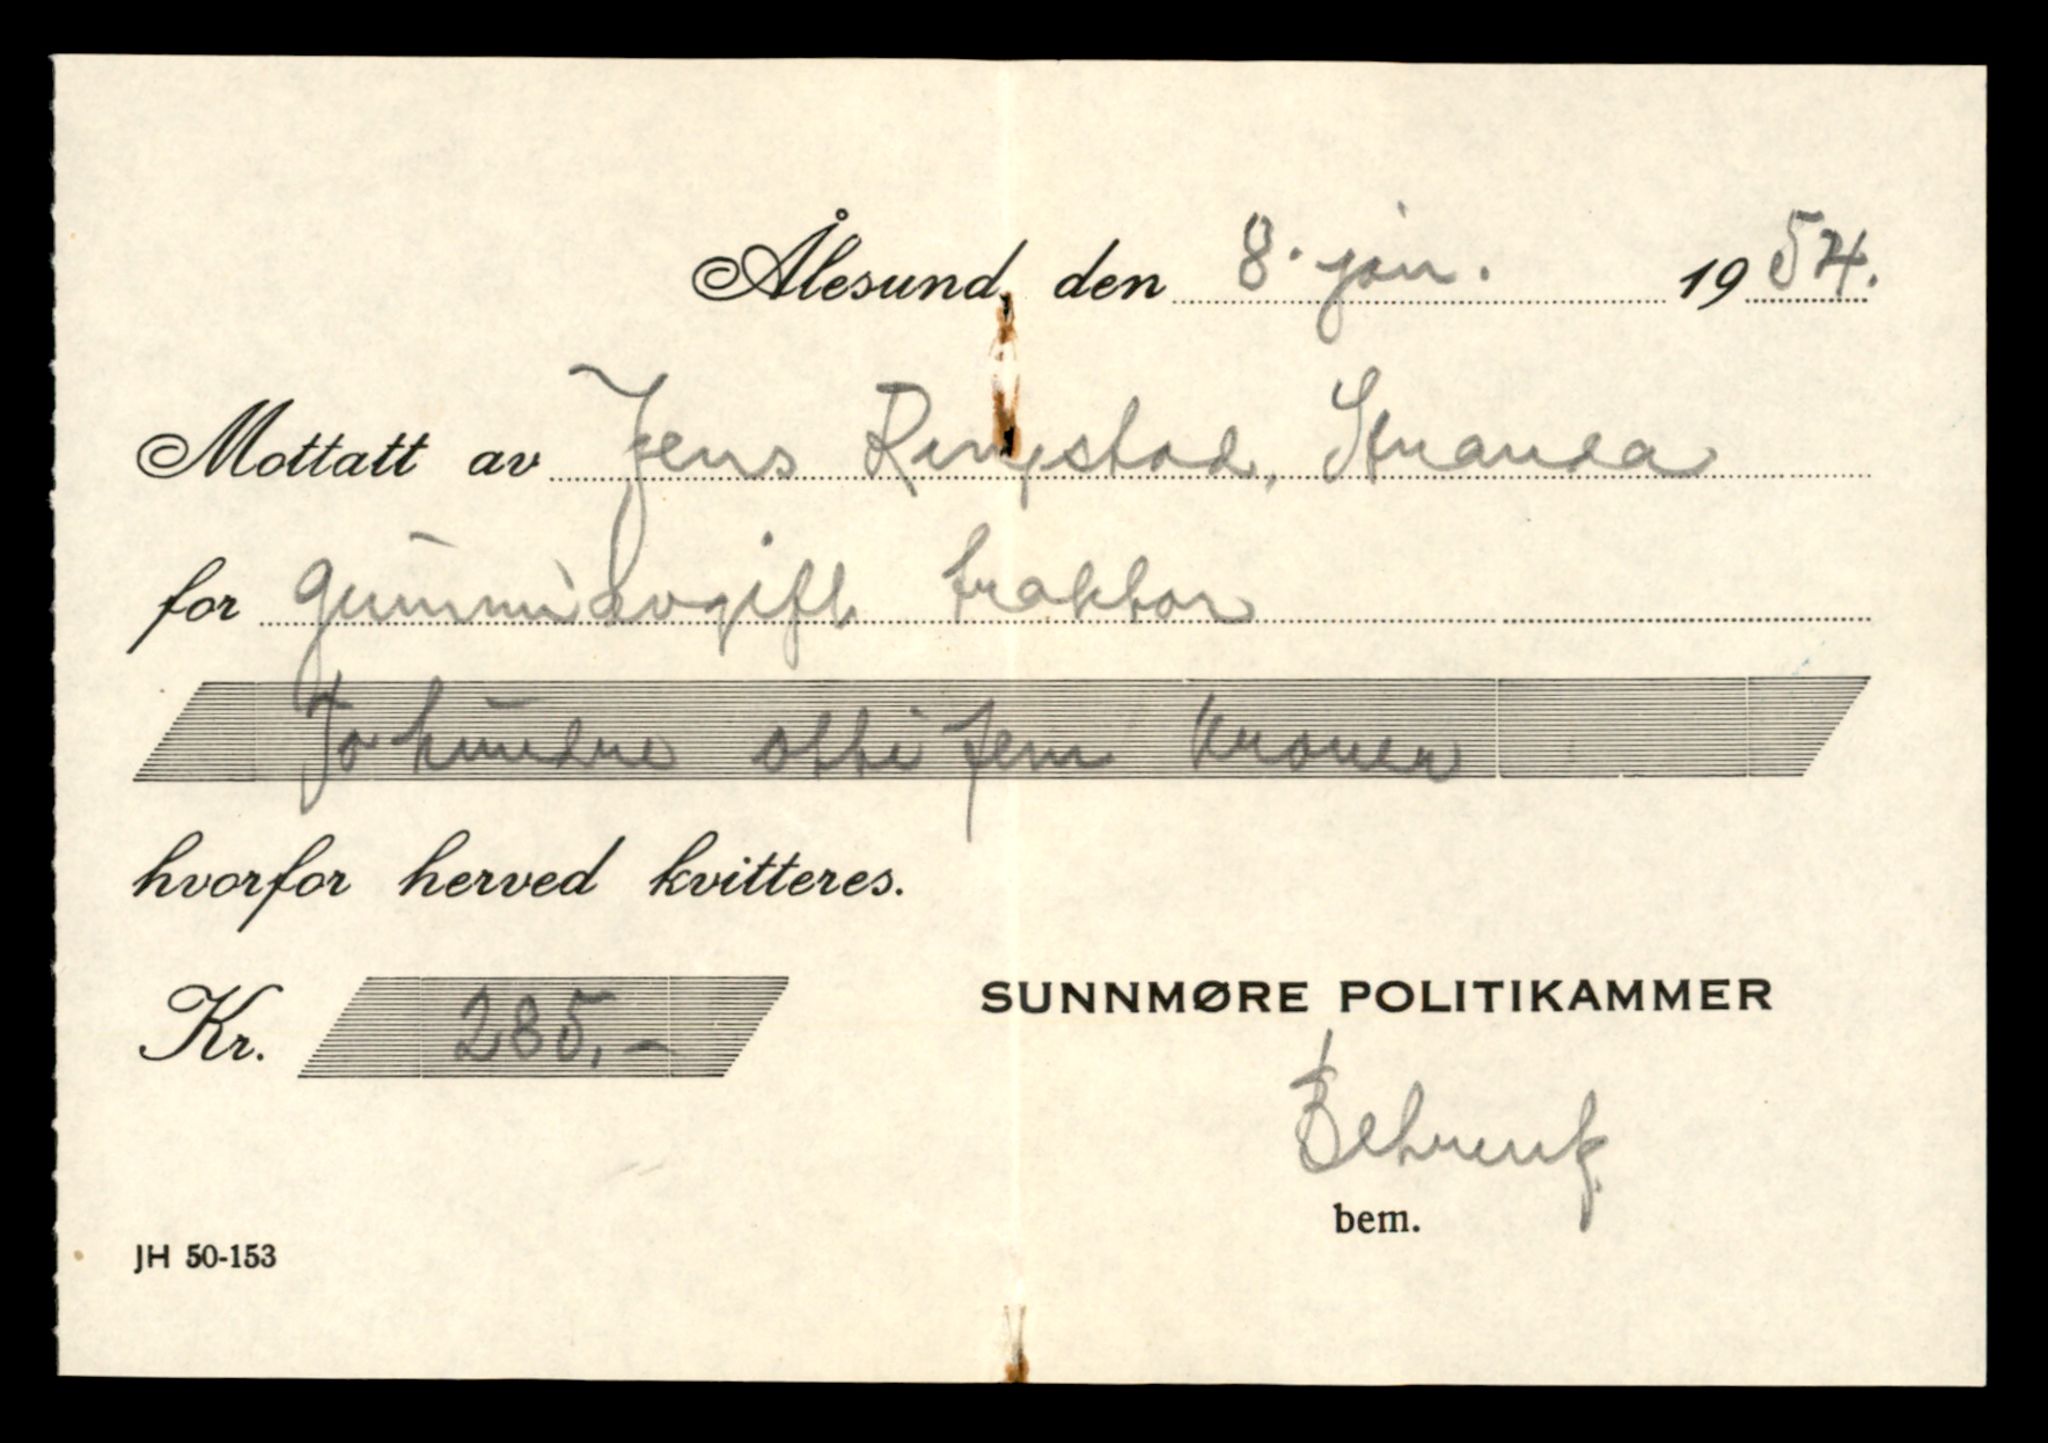 Ålesund, den 8. jan. 1954.
Mottatt av Jens Ringstad, Stranda
for gummiavgift traktor
To hundre otti fem kroner
hvorfor herved kvitteres.
Kr. 285,-
SUNNMØRE POLITIKAMMER
bem.
JH 50-153